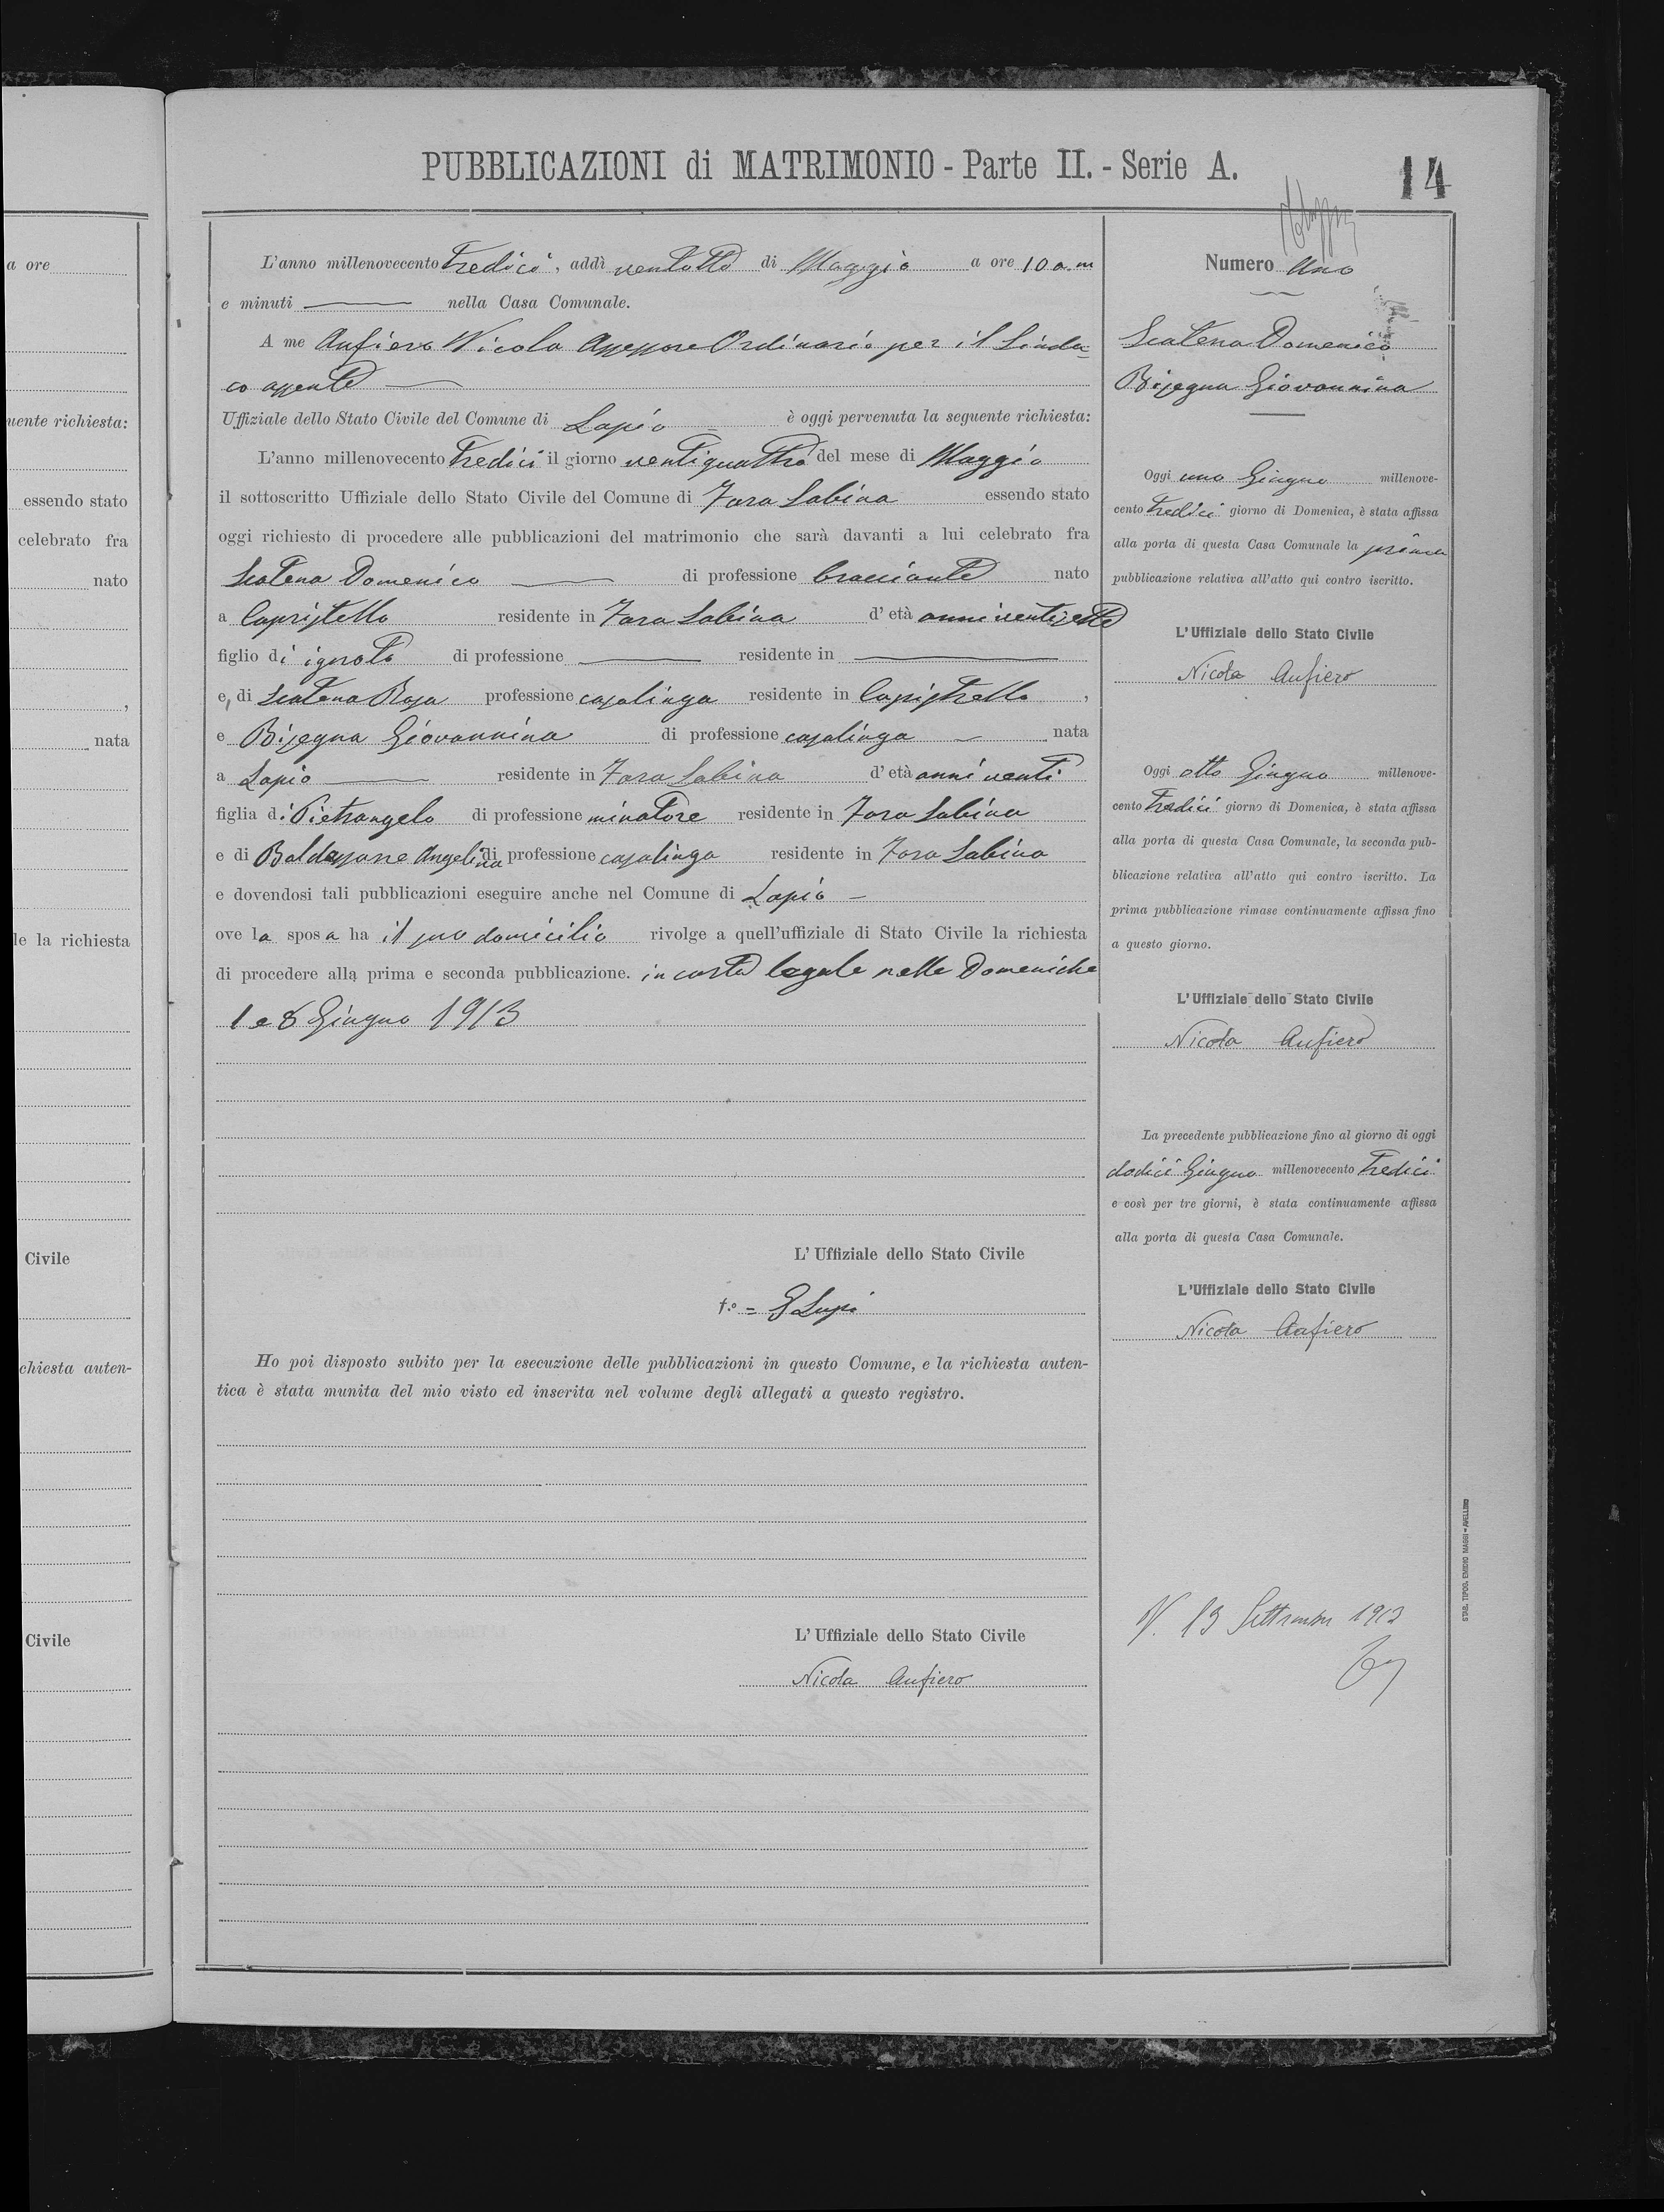 PUBBLICAZIONI di MATRIMONIO - Parte II. - Serie A.
14
L'anno millenovecento Tredici, addì ventotto di Maggio a ore 10 a.m
e minuti nella Casa Comunale.
A me Aufiero Nicola Assessore Ordinario per il Sinda-
co assente
Uffiziale dello Stato Civile del Comune di Lapio è oggi pervenuta la seguente richiesta:
L'anno millenovecento Tredici il giorno ventiquattro del mese di Maggio
il sottoscritto Uffiziale dello Stato Civile del Comune di Fara Sabina essendo stato
oggi richiesto di procedere alle pubblicazioni del matrimonio che sarà davanti a lui celebrato fra
Scatena Domenico di professione bracciante nato
a Capistrello residente in Fara Sabina d'età anni ventisette
figlio di ignoto di professione residente in
e, di Scatena Rosa professione casalinga residente in Capistrello ,
e Bisegna Giovannina di professione casalinga nata
a Lapio residente in Fara Sabina d'età anni venti
figlia di Pietrangelo di professione minatore residente in Fara Sabina
e di Baldassarre Angelina di professione casalinga residente in Fara Sabina
e dovendosi tali pubblicazioni eseguire anche nel Comune di Lapio
ove la sposa ha il suo domicilio rivolge a quell'uffiziale di Stato Civile la richiesta
di procedere alla prima e seconda pubblicazione. in carta legale nelle Domeniche
1 e 8 Giugno 1913
L'Uffiziale dello Stato Civile
f.o = G Lupi
Ho poi disposto subito per la esecuzione delle pubblicazioni in questo Comune, e la richiesta auten-
tica è stata munita del mio visto ed inserita nel volume degli allegati a questo registro.
L'Uffiziale dello Stato Civile
Nicola Aufiero
Numero Uno
Scatena Domenico
Bisegna Giovannina
Oggi uno Giugno millenove-
cento Tredici giorno di Domenica, è stata affissa
alla porta di questa Casa Comunale la prima
pubblicazione relativa all'atto qui contro iscritto.
L'Uffiziale dello Stato Civile
Nicola Aufiero
Oggi otto Giugno millenove-
cento Tredici giorno di Domenica, è stata affissa
alla porta di questa Casa Comunale, la seconda pub-
blicazione relativa all'atto qui contro iscritto. La
prima pubblicazione rimase continuamente affissa fino
a questo giorno.
L'Uffiziale dello Stato Civile
Nicola Aufiero
La precedente pubblicazione fino al giorno di oggi
dodici Giugno millenovecento Tredici
e così per tre giorni, è stata continuamente affissa
alla porta di questa Casa Comunale.
L'Uffiziale dello Stato Civile
Nicola Aufiero
V. 13 Settembre 1913
STAB. TIPOG. EMIDIO MAGGI = AVELLINO
a ore
uente richiesta:
essendo stato
celebrato fra
nato
,
nata
le la richiesta
Civile
chiesta auten-
Civile